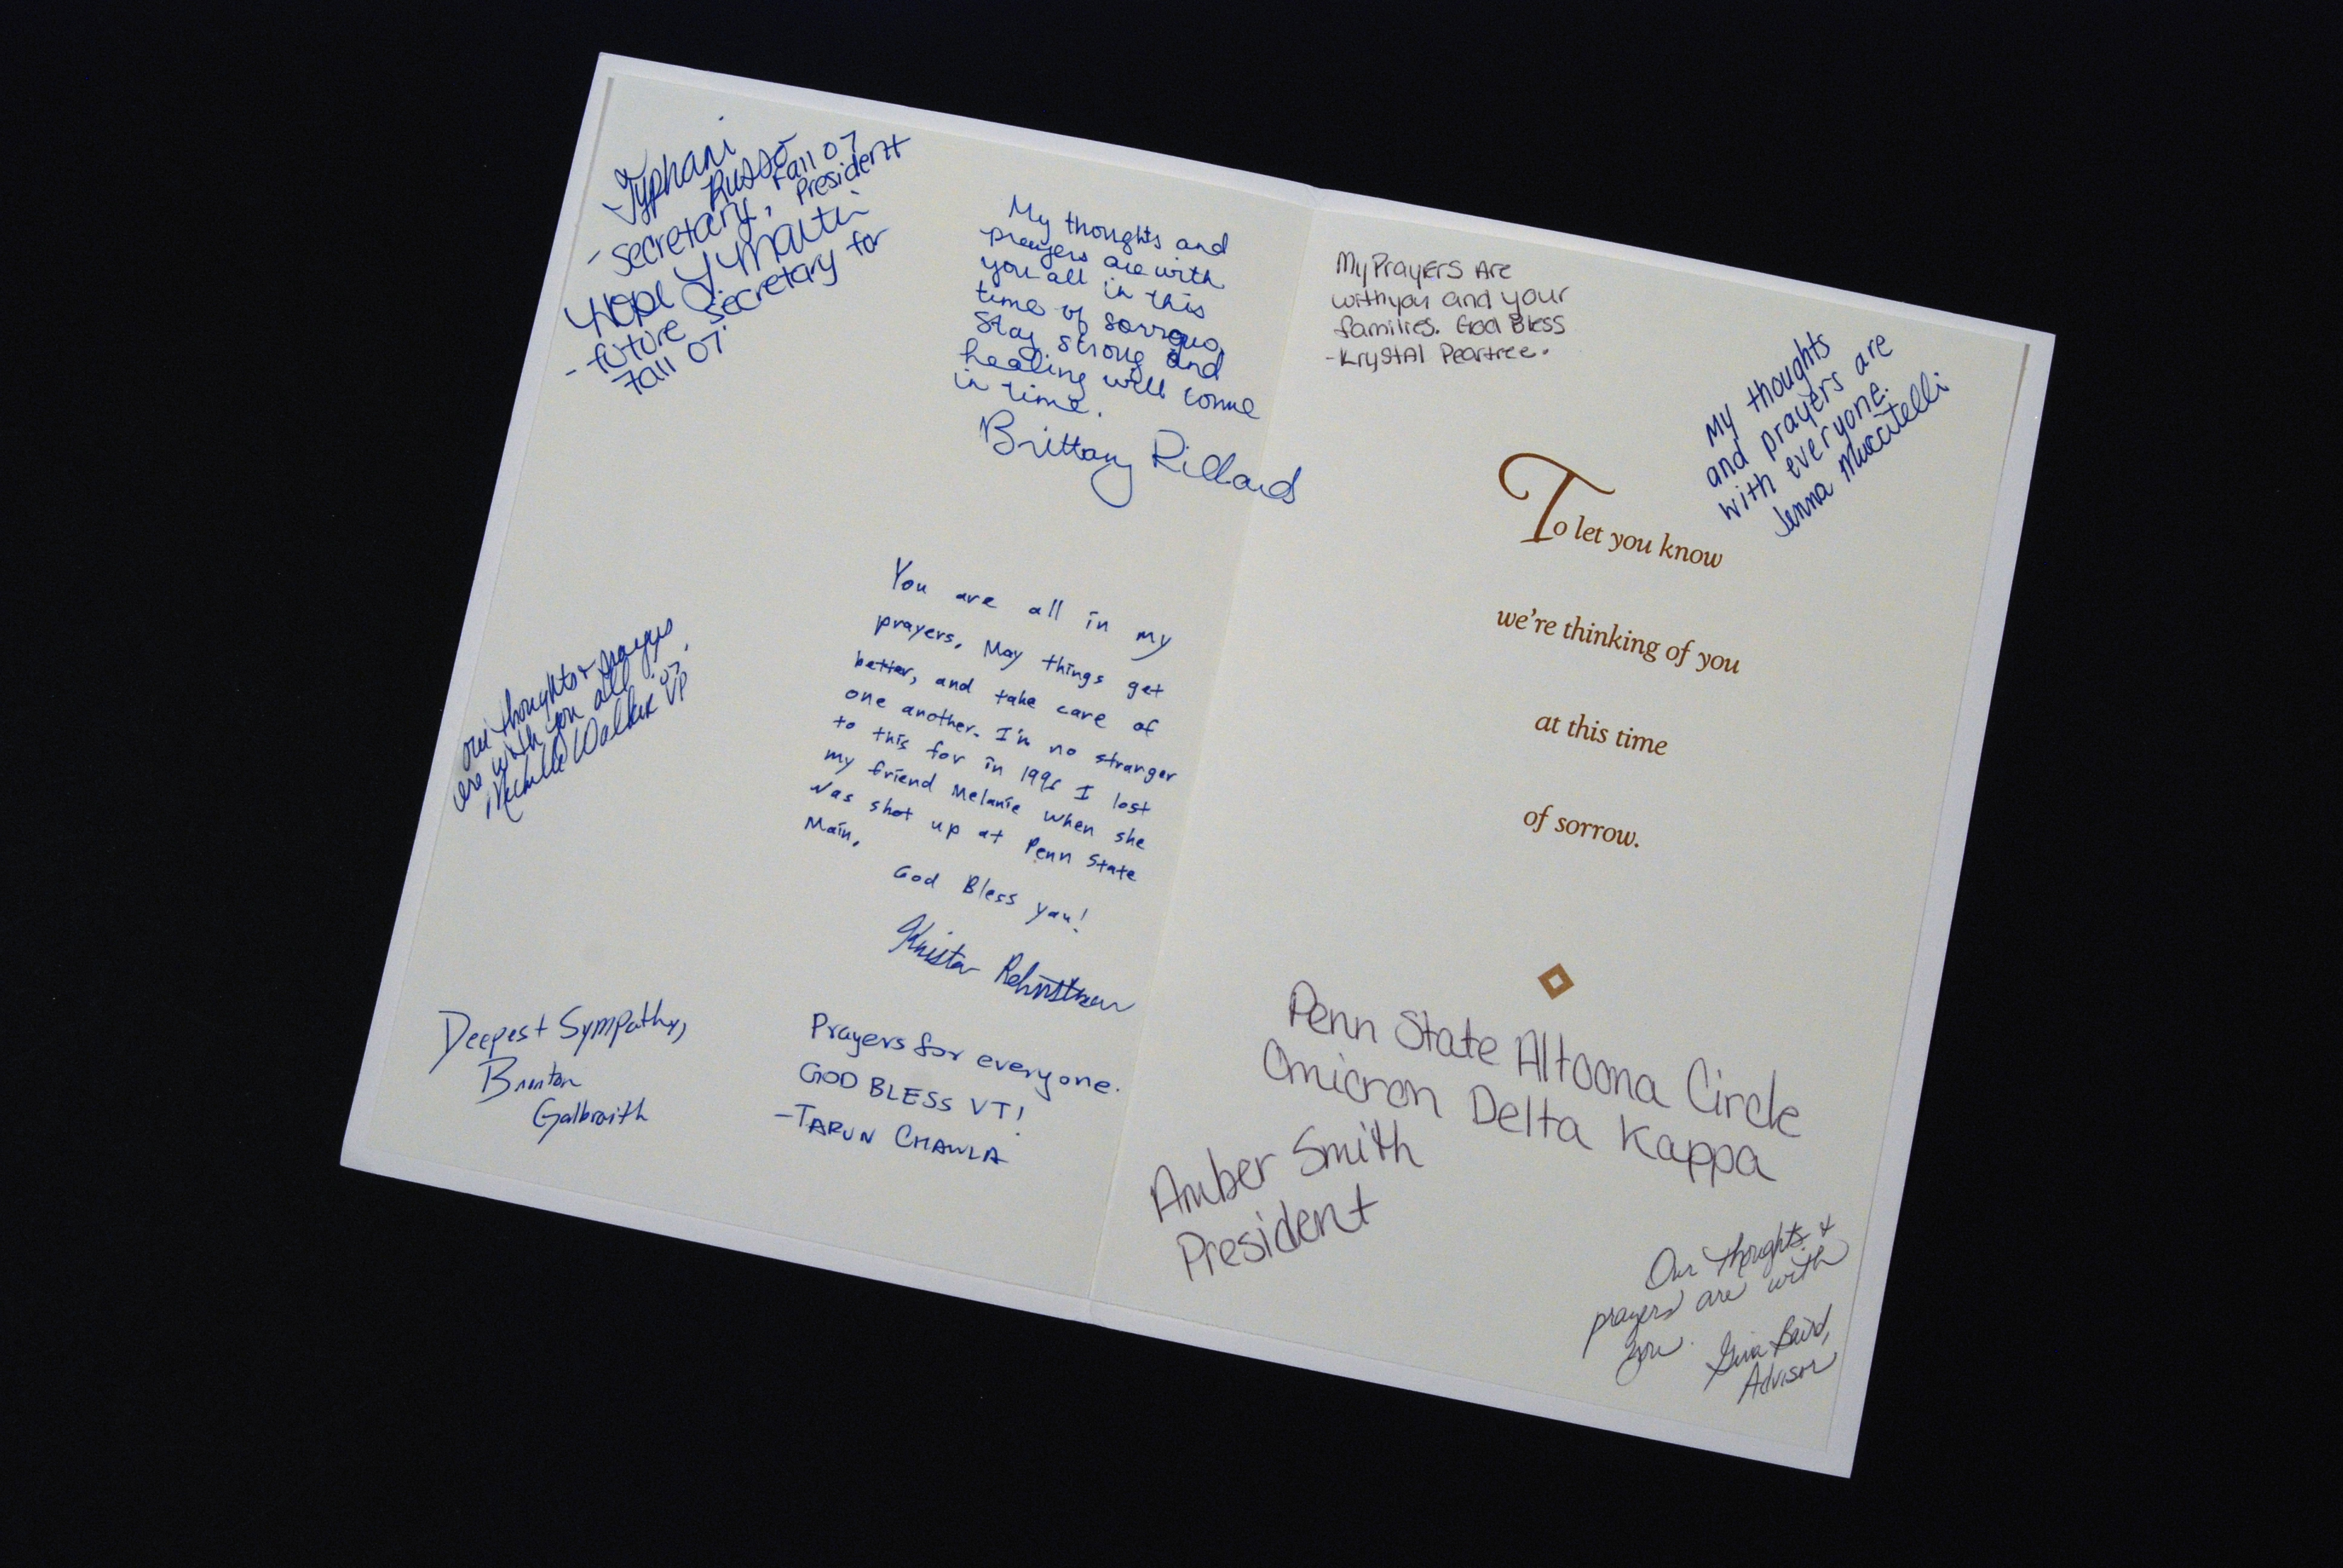 Typhani
Russo
- secretary, Fall 07 President
Hope J. Martin
- future secretary for
Fall 07'
My thoughts and
prayers are with
you all in this
time of sorrow,
Stay strong and
healing will come
in time.
Brittany
our thoughts & prayers
are with you all
Michelle Walker '07' VP
You are all in my
prayers. May things get
better, and take care of
one another. I'm no stranger
to this for in 1996 I lost
my friend Melanie when she
was shot up at Penn State
Main.
God Bless you!
Deepest Sympathy,
Brenton
Galbraith
Prayers for everyone.
GOD BLESS VT!
-TARUN CHAWLA
My Prayers Are
with you and your
families. God Bless
-Krystal Peartree.
My thoughts
and prayers are
with everyone.
Jenna Muccitelli
To let you know
we're thinking of you
at this time
of sorrow.
Penn State Altoona Circle
Omicron Delta Kappa
Amber Smith
President
Our Thoughts &
prayers are with
you.
Gina Baird,
Advisor